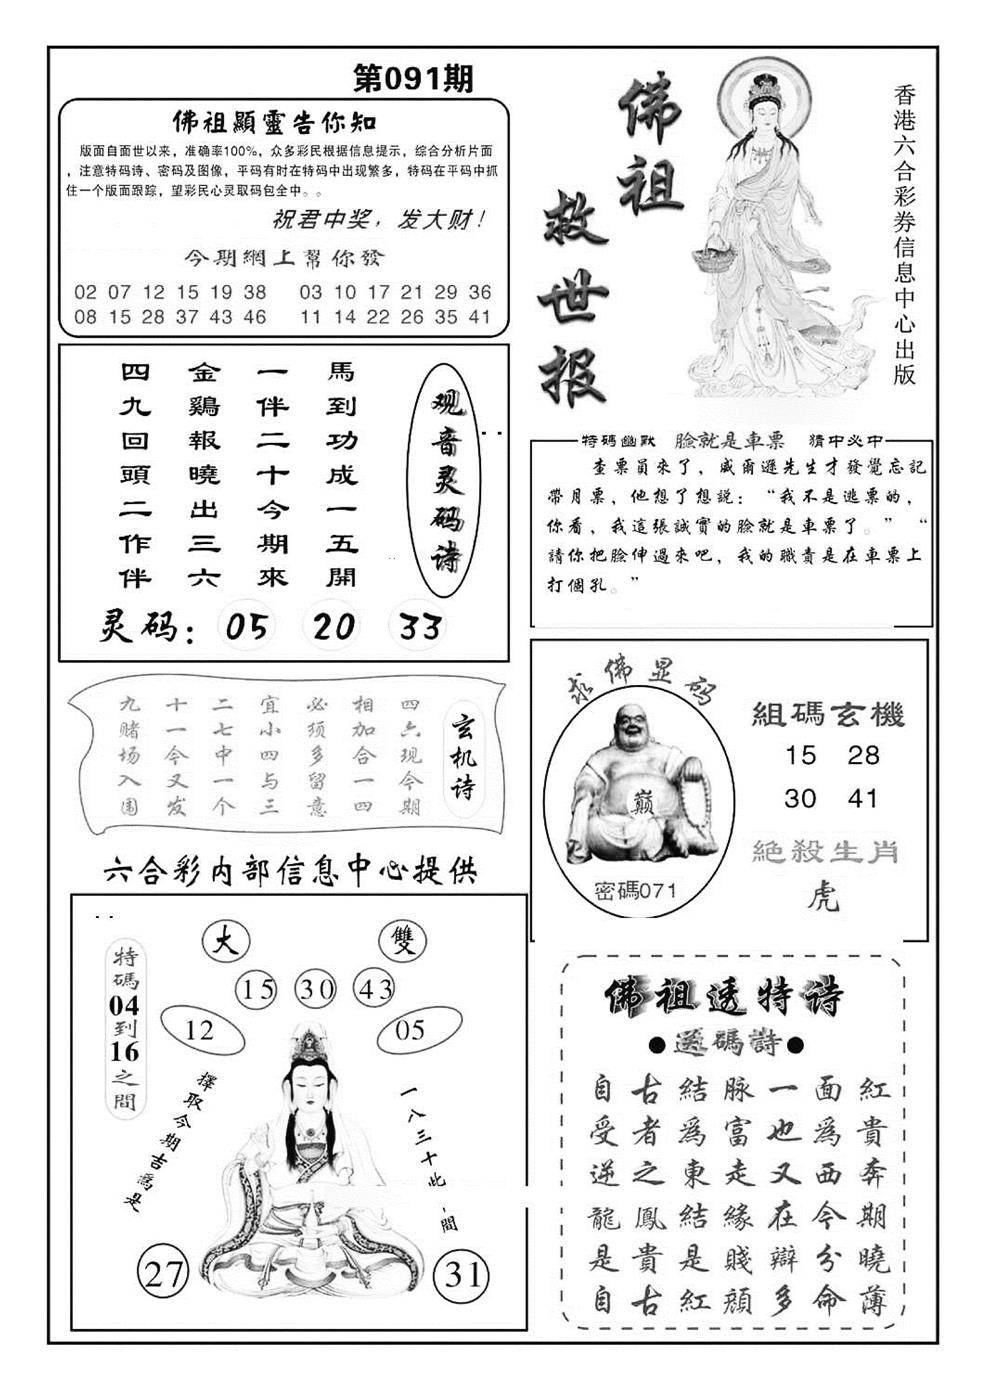 第091期
佛祖顯靈告你知
版面自面世以来，准确率100%，众多彩民根据信息提示，综合分析片面
，注意特码诗、密码及图像，平码有时在特码中出现繁多，特码在平码中抓
住一个版面跟踪，望彩民心灵取码包全中。。
祝君中奖，发大财！
今期網上幫你發
02 07 12 15 19 38 03 10 17 21 29 36
08 15 28 37 43 46 11 14 22 26 35 41
佛祖
救世报
香港六合彩券信息中心出版
观音灵码诗
馬到功成一五開
一伴二十今期來
金鷄報曉出三六
四九回頭二作伴
灵码：05 20 33
特碼幽默 臉就是車票 猜中必中
查票員來了，威爾遜先生才發覺忘記
帶月票，他想了想説：“我不是逃票的，
你看，我這張誠實的臉就是車票了。”“
請你把臉伸過來吧，我的職責是在車票上
打個孔。”
玄机诗
四六现今期
相加合一四
必须多留意
宜小四与三
二七中一个
十一今又发
九赌场入围
六合彩内部信息中心提供
求佛显码
巅
密碼071
組碼玄機
15 28
30 41
絕殺生肖
虎
大 雙
15 30 43
12 05
特碼04到16之間
擇取今期吉爲是
一八三十此間
27 31
佛祖透特诗
●透碼詩●
自古結脉一面紅
受者爲富也爲貴
逆之東走又西奔
龍鳳結緣在今期
是貴是賤辯分曉
自古紅顔多命薄